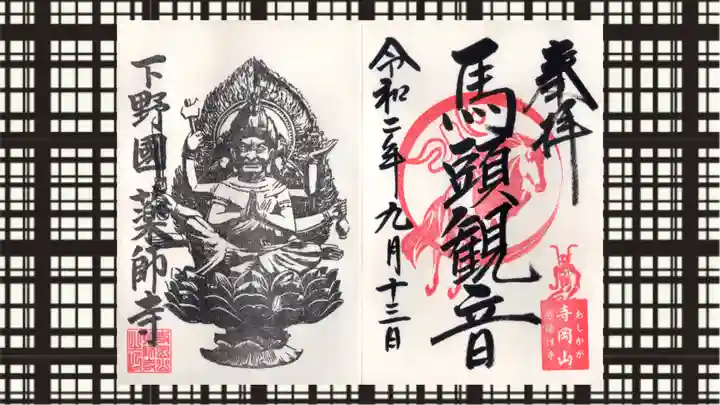 奉拝
馬頭観音
令和二年九月十三日
あしかが
寺岡山
下野國薬師寺